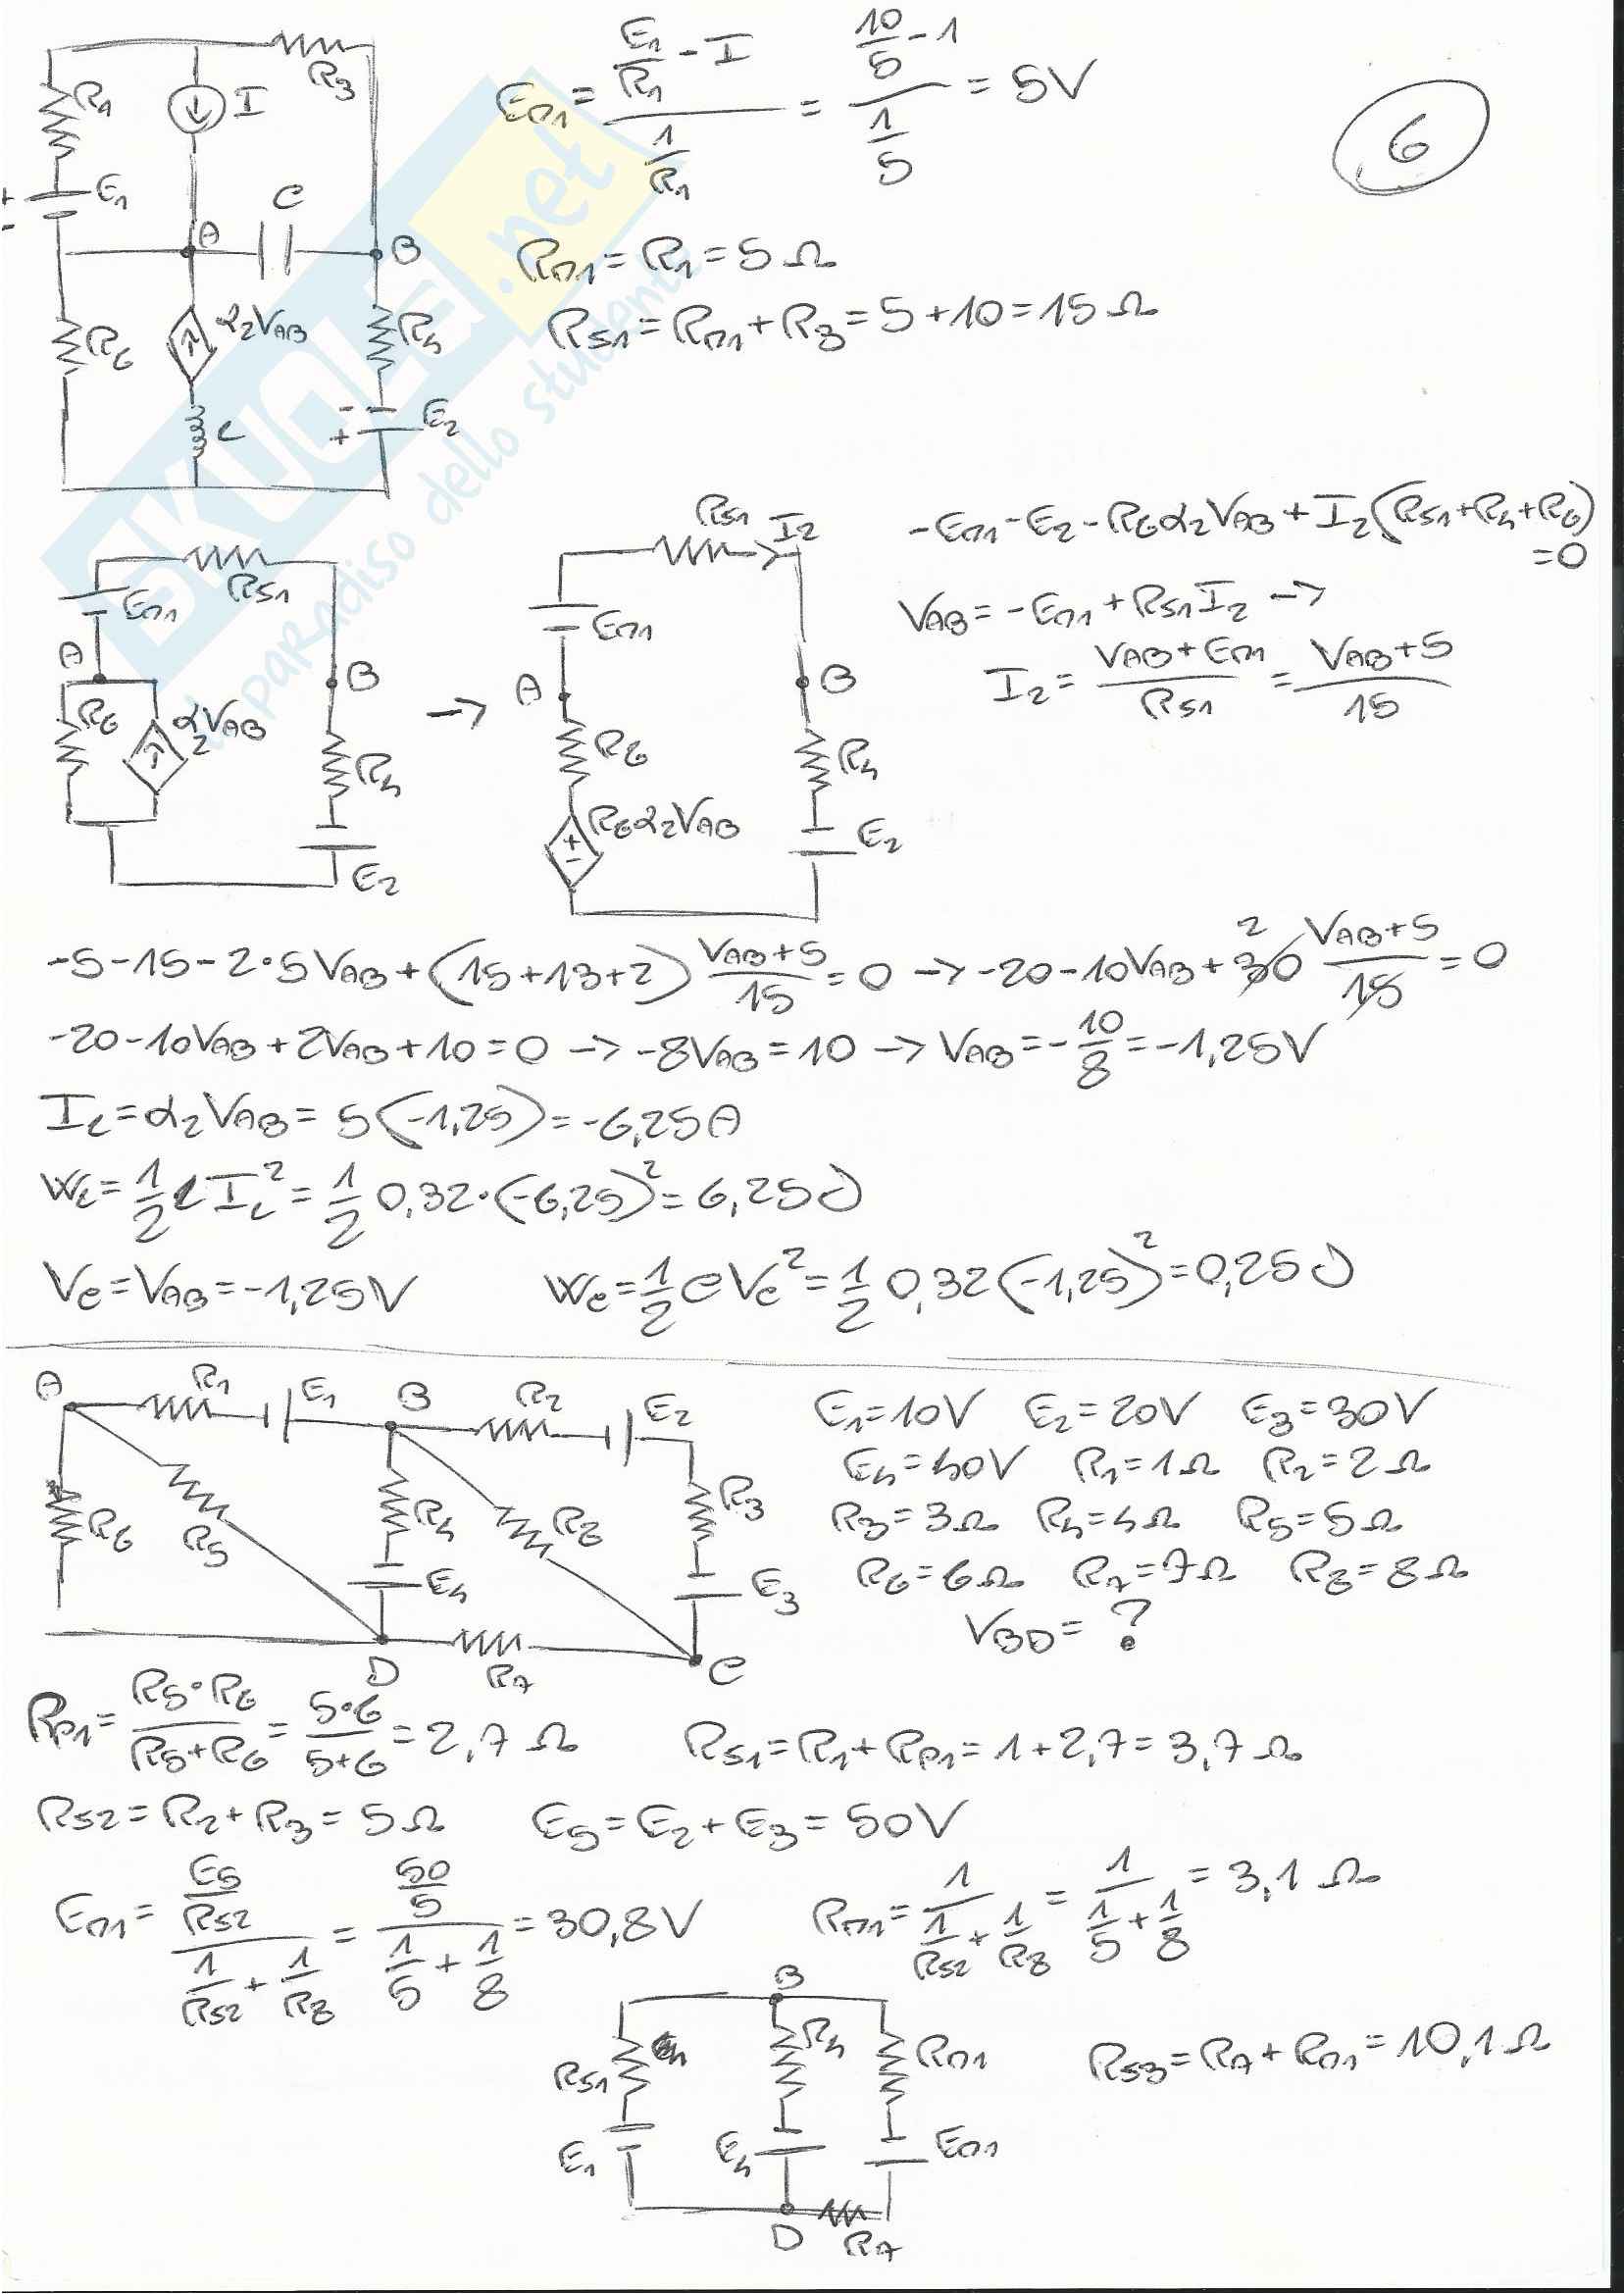 R1 I R3
E1 C
+
-
A B
R6 α2VAB R4
L - + E2
EM1 = (E1/R1 - I)/(1/R1) = (10/5 - 1)/(1/5) = 5V
6
RM1 = R1 = 5 Ω
RS1 = RM1 + R3 = 5 + 10 = 15 Ω
SKUOLA.net
il paradiso dello studente
EM1 RS1
A B
R6 α2VAB R4
E2
→
RS1 I2
EM1
A B
R6 R4
+ - R6α2VAB E2
-EM1 - E2 - R6α2VAB + I2(RS1 + R4 + R6) = 0
VAB = -EM1 + RS1I2 →
I2 = (VAB + EM1)/RS1 = (VAB + 5)/15
-5 - 15 - 2·5VAB + (15 + 13 + 2) (VAB + 5)/15 = 0 → -20 - 10VAB + 30 2 (VAB + 5)/15 = 0
-20 - 10VAB + 2VAB + 10 = 0 → -8VAB = 10 → VAB = -10/8 = -1,25V
IL = α2VAB = 5(-1,25) = -6,25A
WL = 1/2 L IL² = 1/2 0,32·(-6,25)² = 6,25J
VC = VAB = -1,25V WC = 1/2 C VC² = 1/2 0,32(-1,25)² = 0,25J
A R1 E1 B R2 E2
R6 R5 R4 R8 R3
E4 E3
D R7 C
E1 = 10V E2 = 20V E3 = 30V
E4 = 40V R1 = 1Ω R2 = 2Ω
R3 = 3Ω R4 = 4Ω R5 = 5Ω
R6 = 6Ω R7 = 7Ω R8 = 8Ω
VBD = ?
RP1 = (R5·R6)/(R5 + R6) = (5·6)/(5+6) = 2,7 Ω RS1 = R1 + RP1 = 1 + 2,7 = 3,7 Ω
RS2 = R2 + R3 = 5Ω E5 = E2 + E3 = 50V
EM1 = (E5/RS2)/(1/RS2 + 1/R8) = (50/5)/(1/5 + 1/8) = 30,8V RM1 = 1/(1/RS2 + 1/R8) = 1/(1/5 + 1/8) = 3,1 Ω
B
RS1 R4 RM1
E1 E4 EM1
D R7
RS3 = R7 + RM1 = 10,1Ω